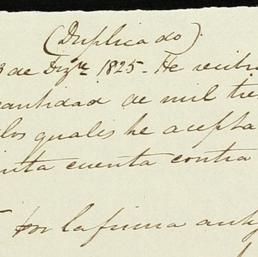 (Duplicado).
de Diz.re 1825. He recibi
cantidad de mil tre
los quales he acepta
cuenta contra
por la firma ant